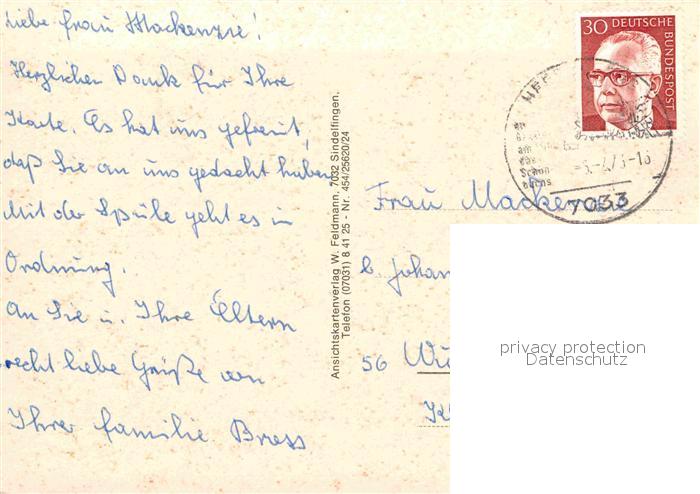 Liebe Frau Mackenzie!
Herzlichen Dank für Ihre
Karte. Es hat uns gefreut,
daß Sie an uns gedacht haben
Mit der Spüle geht es in
Ordnung.
An Sie u. Ihre Eltern
recht liebe Grüße von
Ihrer Familie Bress
Ansichtskartenverlag W. Feldmann, 7032 Sindelfingen,
Telefon (07031) 8 41 25 - Nr. 454/25620/24
30 DEUTSCHE
BUNDESPOST
am
Schön
buchs
7033
Frau Mackenzie
b Johan
56 Wu
privacy protection
Datenschutz